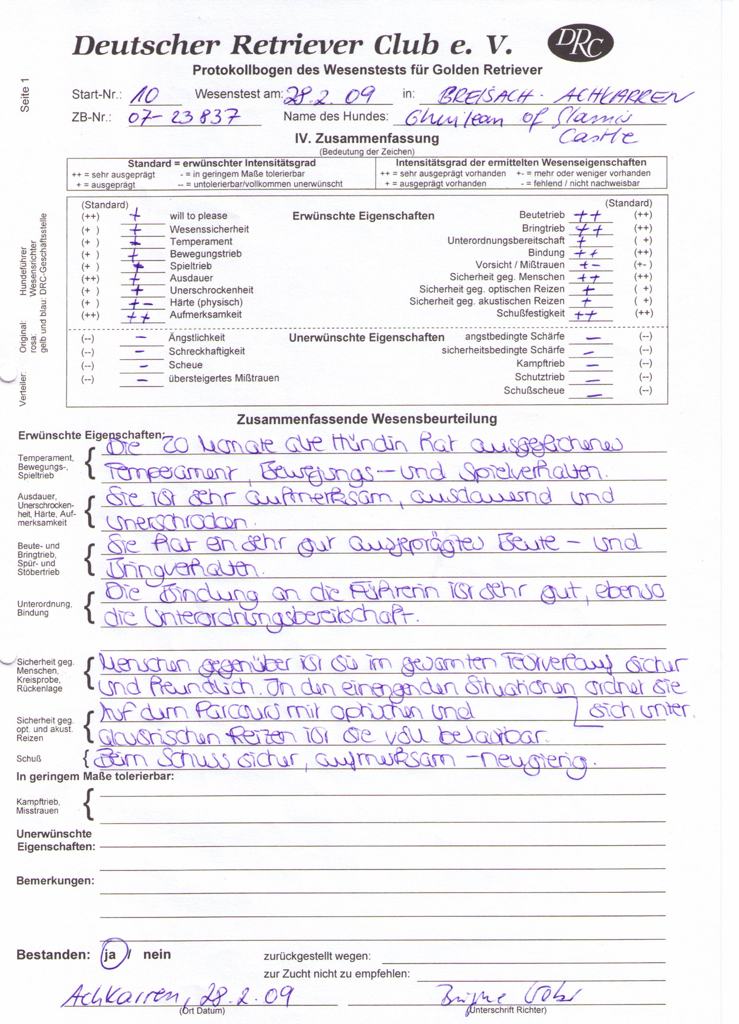 Deutscher Retriever Club e. V. DRC
Protokollbogen des Wesenstests für Golden Retriever
Seite 1
Start-Nr.: 10 Wesenstest am: 28.2.09 in: BREISACH - ACHKARREN
ZB-Nr.: 07-23837 Name des Hundes: of
Castle
IV. Zusammenfassung
(Bedeutung der Zeichen)
Standard = erwünschter Intensitätsgrad
++ = sehr ausgeprägt - = in geringem Maße tolerierbar
+ = ausgeprägt -- = untolerierbar/vollkommen unerwünscht
Intensitätsgrad der ermittelten Wesenseigenschaften
++ = sehr ausgeprägt vorhanden +- = mehr oder weniger vorhanden
+ = ausgeprägt vorhanden - = fehlend / nicht nachweisbar
(Standard)
Erwünschte Eigenschaften
(++) + will to please
(+ ) + Wesenssicherheit
(+ ) + Temperament
(+ ) + Bewegungstrieb
(+ ) + Spieltrieb
(++) + Ausdauer
(+ ) + Unerschrockenheit
(+ ) + - Härte (physisch)
(++) ++ Aufmerksamkeit
(Standard)
Beutetrieb ++ (++)
Bringtrieb ++ (++)
Unterordnungsbereitschaft + ( +)
Bindung ++ (++)
Vorsicht / Mißtrauen +- (+-)
Sicherheit geg. Menschen ++ (++)
Sicherheit geg. optischen Reizen + ( +)
Sicherheit geg. akustischen Reizen + ( +)
Schußfestigkeit ++ (++)
Unerwünschte Eigenschaften
(--) - Ängstlichkeit
(--) - Schreckhaftigkeit
(--) - Scheue
(--) - übersteigertes Mißtrauen
angstbedingte Schärfe - (--)
sicherheitsbedingte Schärfe - (--)
Kampftrieb - (--)
Schutztrieb - (--)
Schußscheue - (--)
Verteiler: Original: Hundeführer
rosa: Wesensrichter
gelb und blau: DRC-Geschäftsstelle
Zusammenfassende Wesensbeurteilung
Erwünschte Eigenschaften:
Temperament, Bewegungs-, Spieltrieb
Die 20 Monate alte Hündin hat ausgeglichenes
Temperament, Bewegungs- und Spielverhalten.
Ausdauer, Unerschrockenheit, Härte, Aufmerksamkeit
Sie ist sehr aufmerksam, ausdauernd und
unerschrocken.
Beute- und Bringtrieb, Spür- und Stöbertrieb
Sie hat ein sehr gut ausgeprägtes Beute- und
Bringverhalten.
Unterordnung, Bindung
Die Bindung an die Führerin ist sehr gut, ebenso
die Unterordnungsbereitschaft.
Sicherheit geg. Menschen, Kreisprobe, Rückenlage
Menschen gegenüber ist sie im gesamten Testverlauf sicher
und freundlich. In den einengenden Situationen ordnet sie
sich unter.
Sicherheit geg. opt. und akust. Reizen
Auf dem Parcours mit optischen und
akustischen Reizen ist sie voll belastbar.
Schuß
Beim Schuss sicher, aufmerksam - neugierig.
In geringem Maße tolerierbar:
Kampftrieb, Misstrauen
Unerwünschte Eigenschaften:
Bemerkungen:
Bestanden: ja / nein
zurückgestellt wegen:
zur Zucht nicht zu empfehlen:
Achkarren, 28.2.09
(Ort Datum) (Unterschrift Richter)